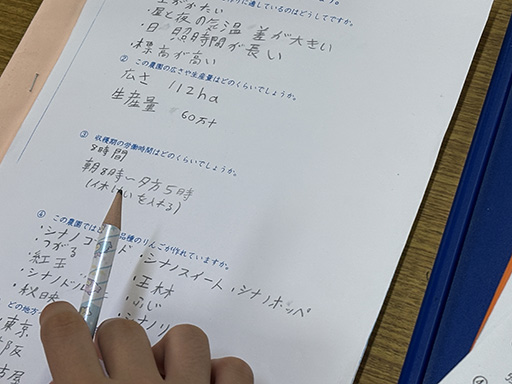 に適しているのはどうしてですか。
・昼と夜の気温差が大きい
・日照時間が長い
・標高が高い
② この農園の広さや生産量はどのくらいでしょうか。
広さ 112ha
生産量 60万t
③ 収穫期の労働時間はどのくらいでしょうか。
8時間
朝8時〜夕方5時
④ この農園では 品種のりんごが作れていますか。
・シナノゴ ルド ・シナノスイート ・シナノホッペ
・つがる ・王林
・紅玉 ・ふじ
・シナノドル
・秋映 ・シナノリ
どの地方
東京
大阪